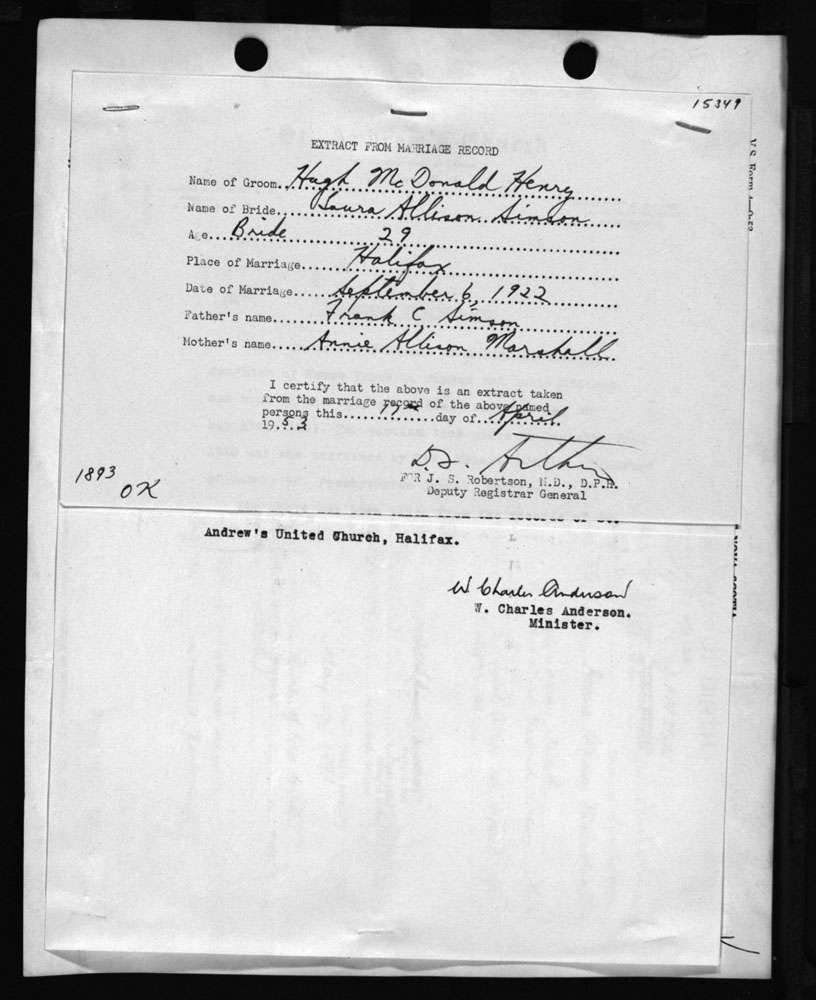 15349
EXTRACT FROM MARRIAGE RECORD
Name of Groom..Hugh McDonald Henry
Name of Bride...Laura Allison Simson
A e...Bride 29
Place of Marriage....Halifax
Date of Marriage....September 6, 1922
Father's name....Frank C Simson
Mother's name....Annie Allison Marshall
I certify that the above is an extract taken
from the marriage record of the above named
persons this....17th....day of..April
1953
D.S.
FOR J. S. Robertson, M.D., D.P.H.
Deputy Registrar General
1893
OK
Andrew's United Church, Halifax.
W Charles Anderson
W. Charles Anderson.
Minister.
V.S. Form